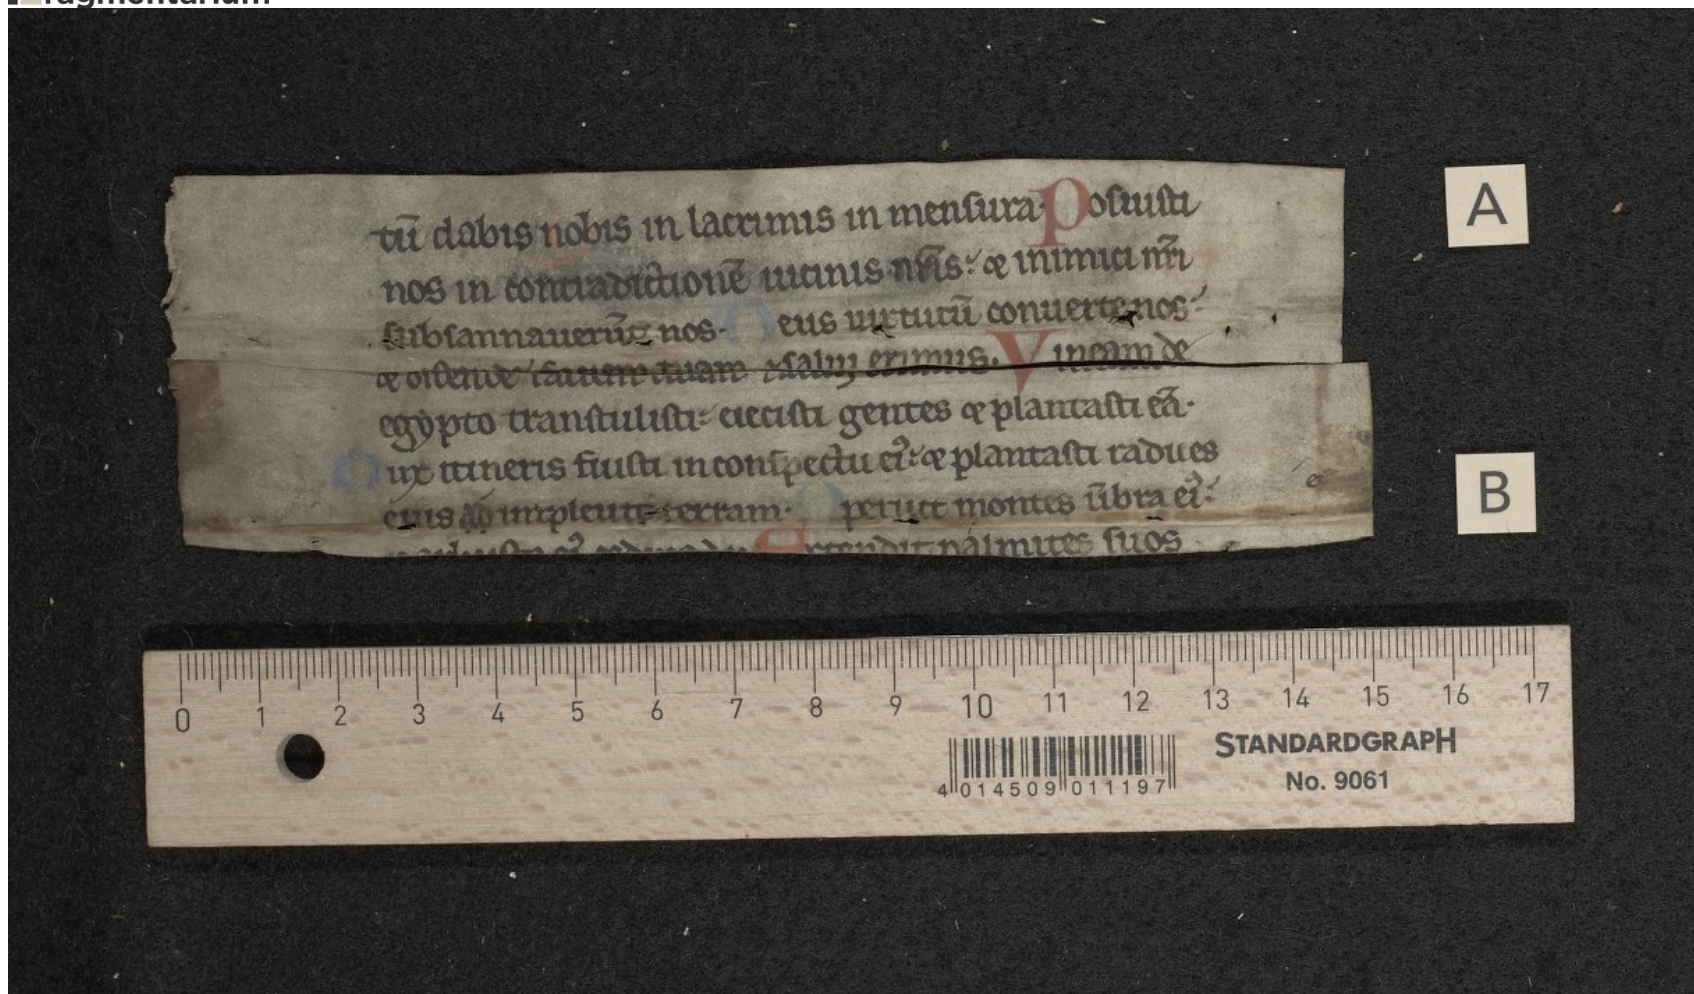 ragmentarium
tū dabis nobis in lacrimis in mensura· Posuisti
nos in contradictionē uicinis nr̄is: & inimici nr̄i
subsannauerūt nos· Deus uirtutū conuerte nos·
& ostende faciem tuam & salui erimus· Vineam de
egypto transtulisti: eiecisti gentes & plantasti eā·
Dux itineris fuisti in conspectu ei᾽: & plantasti radices
eius & impleuit terram· Operuit montes ūbra ei᾽:
Extendit palmites suos
A
B
0 1 2 3 4 5 6 7 8 9 10 11 12 13 14 15 16 17
STANDARDGRAPH
No. 9061
4 014509 011197